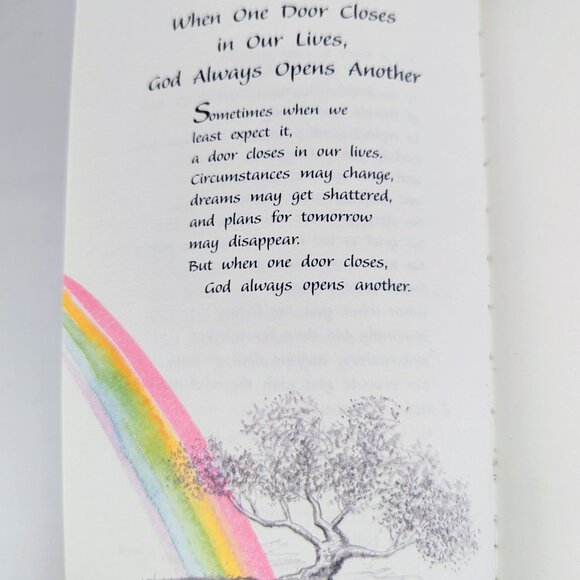 When One Door Closes
in Our Lives,
God Always Opens Another
Sometimes when we
least expect it,
a door closes in our lives.
Circumstances may change,
dreams may get shattered,
and plans for tomorrow
may disappear.
But when one door closes,
God always opens another.